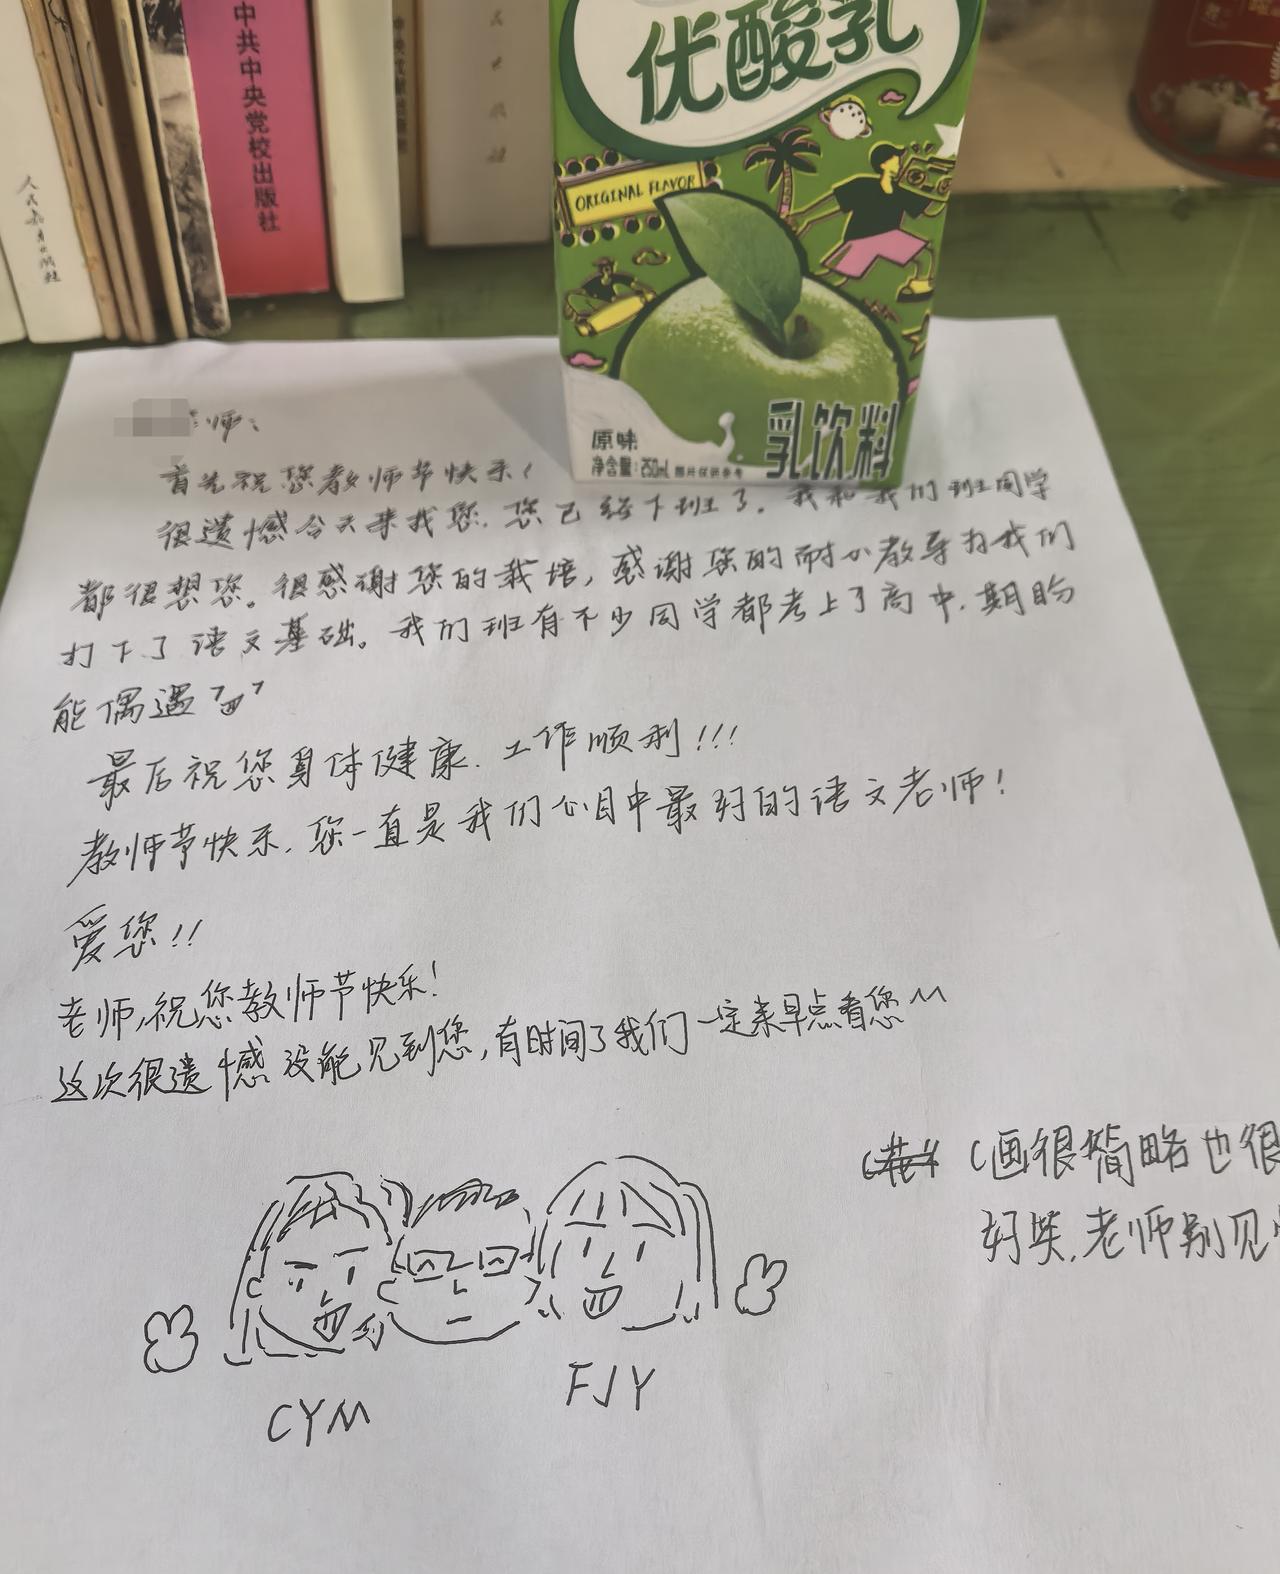 中共中央党校出版社
人民教育出版社
优酸乳
ORIGINAL FLAVOR
原味
净含量:250mL 图片仅供参考
乳饮料
师：
首先祝您教师节快乐！
很遗憾今天来找您，您已经下班了。我和我们班同学
都很想您。很感谢您的栽培，感谢您的耐心教导为我们
打下了语文基础。我们班有不少同学都考上了高中，期盼
能偶遇
最后祝您身体健康，工作顺利!!!
教师节快乐，您一直是我们心目中最好的语文老师！
爱您!!
老师，祝您教师节快乐！
这次很遗憾没能见到您，有时间了我们一定来早点看您^^
(画很简略也很
好笑，老师别见
CYM
FJY